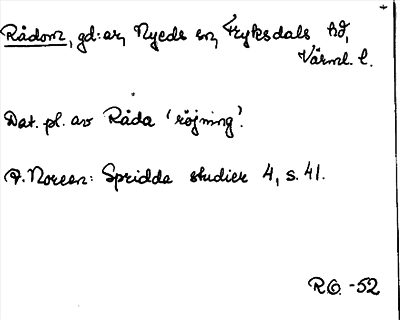 Rådom, gd:ar, Nyeds sn, Fryksdals hd,
Värml. l.
Dat. pl. av Råda 'röjning'.
A. Noreen: Spridda studier 4, s. 41.
R.O. -52